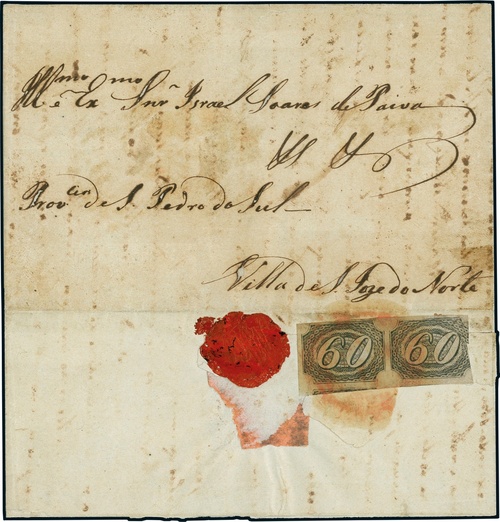 Illmo e Exmo Snr Israel Soares de Paiva
Provcia de S. Pedro do Sul
Villa de S Joze do Norte
60 60